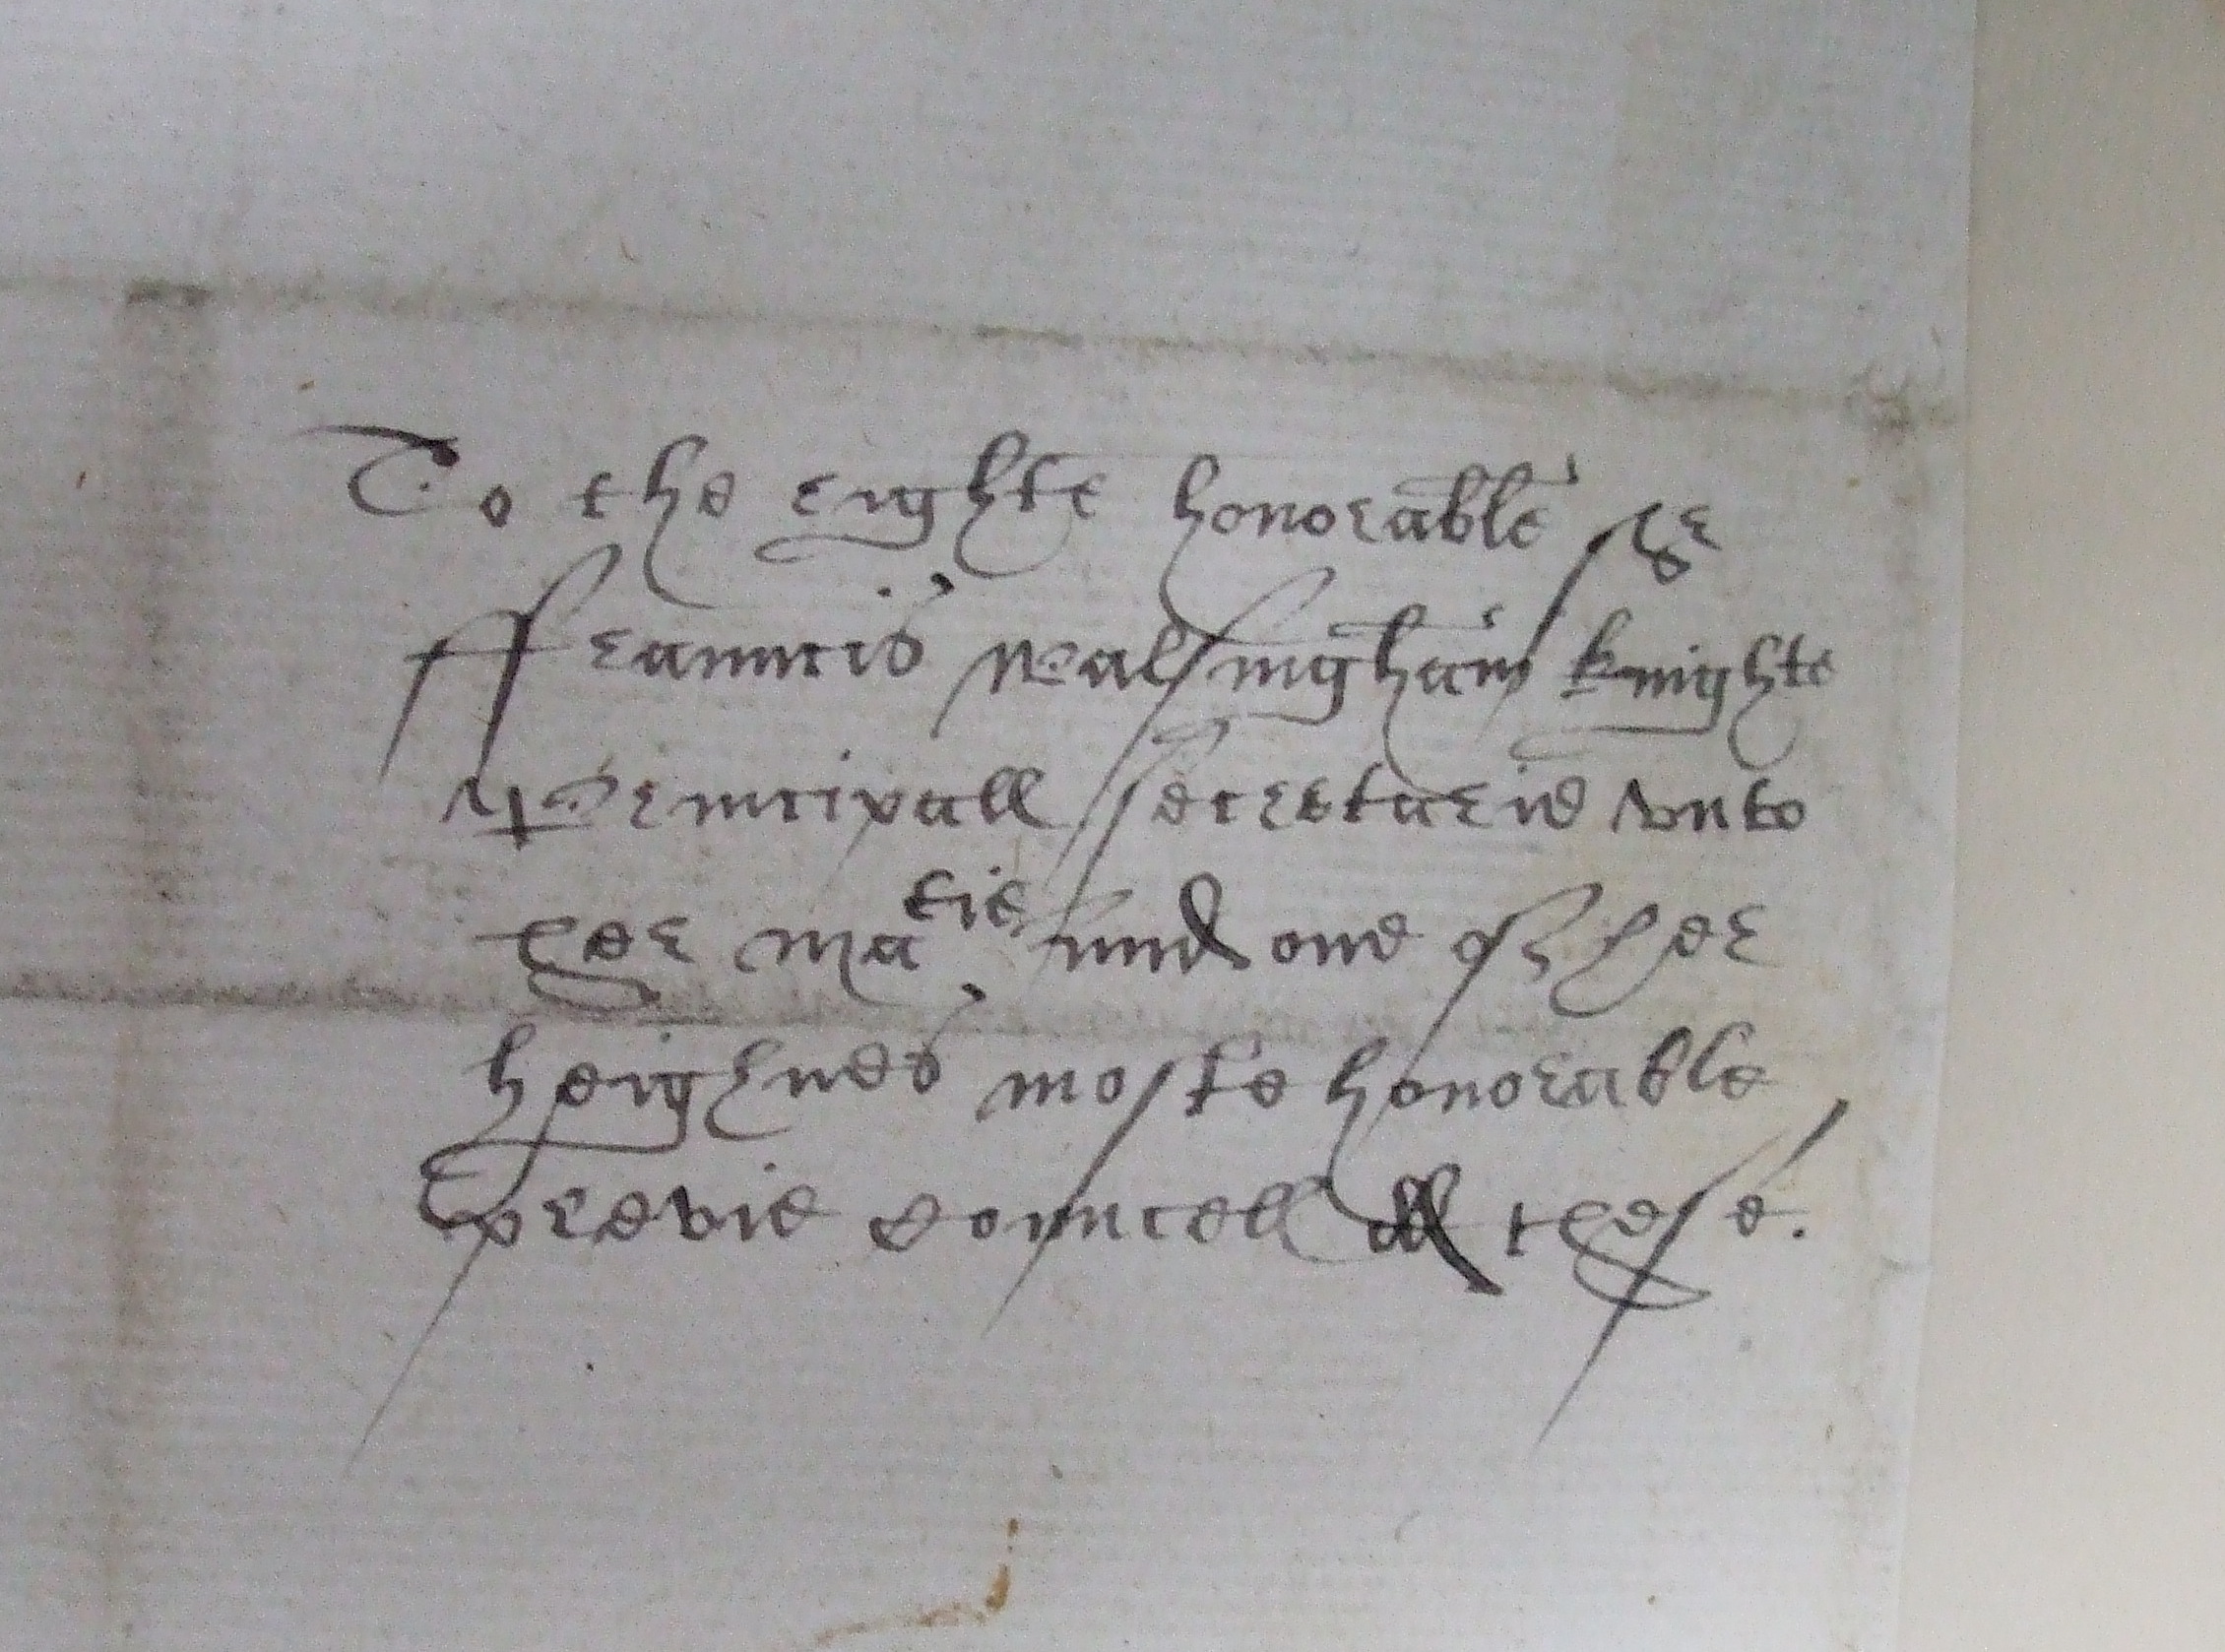 To the righte honorable Sr
ffrauncis Walsingham knighte
Principall Secretarie vnto
her Matie and one of her
heighnes moste honorable
previe Councell dd these.